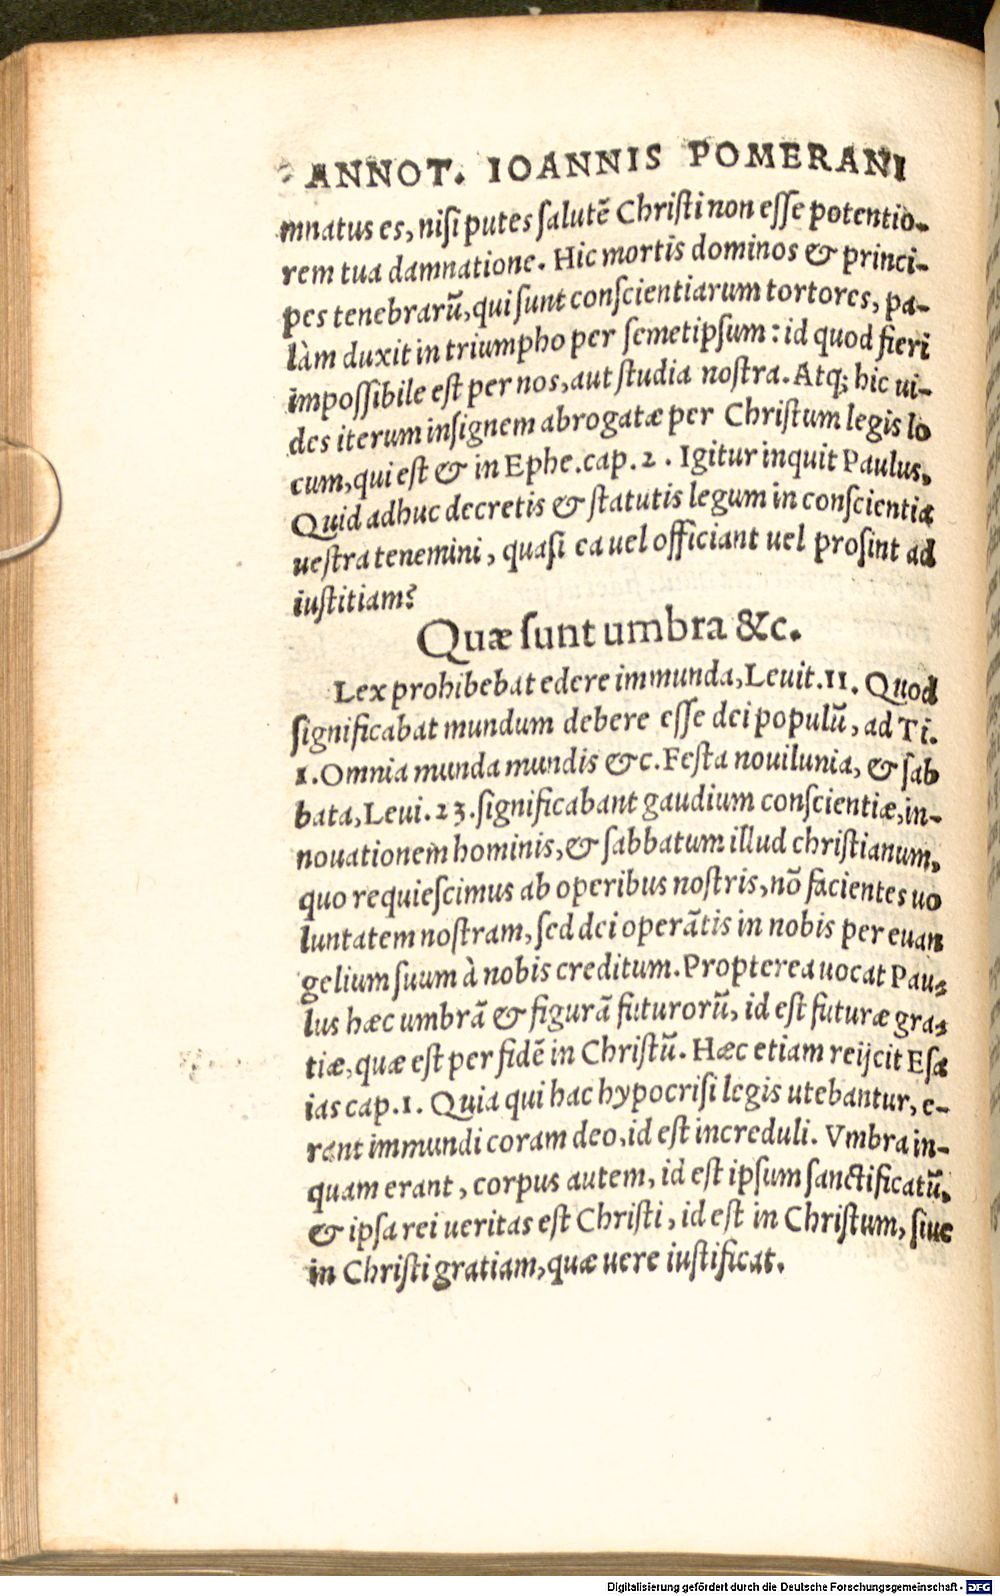 ANNOT. IOANNIS POMERANI
mnatus es, nisi putes salutē Christi non esse potentio-
rem tua damnatione. Hic mortis dominos & princi-
pes tenebrarū, qui sunt conscientiarum tortores, pa-
làm duxit in triumpho per semetipsum: id quod fieri
impossibile est per nos, aut studia nostra. Atq; hic ui-
des iterum insignem abrogatæ per Christum legis lo
cum, qui est & in Ephe. cap. 2. Igitur inquit Paulus,
Quid adhuc decretis & statutis legum in conscientia
uestra tenemini, quasi ea uel officiant uel prosint ad
iustitiam?
Quæ sunt umbra &c.
Lex prohibebat edere immunda, Leuit. 11. Quod
significabat mundum debere esse dei populū, ad Ti.
1. Omnia munda mundis &c. Festa nouilunia, & sab
bata, Leui. 23. significabant gaudium conscientiæ, in-
nouationem hominis, & sabbatum illud christianum,
quo requiescimus ab operibus nostris, nō facientes uo
luntatem nostram, sed dei operātis in nobis per euan
gelium suum à nobis creditum. Propterea uocat Pau-
lus hæc umbrā & figurā futurorū, id est futuræ gra-
tiæ, quæ est per fidē in Christū. Hæc etiam reijcit Esa
ias cap. 1. Quia qui hac hypocrisi legis utebantur, e-
rant immundi coram deo, id est increduli. Vmbra in-
quam erant, corpus autem, id est ipsum sanctificatū,
& ipsa rei ueritas est Christi, id est in Christum, siue
in Christi gratiam, quæ uere iustificat.
Digitalisierung gefördert durch die Deutsche Forschungsgemeinschaft - DFG